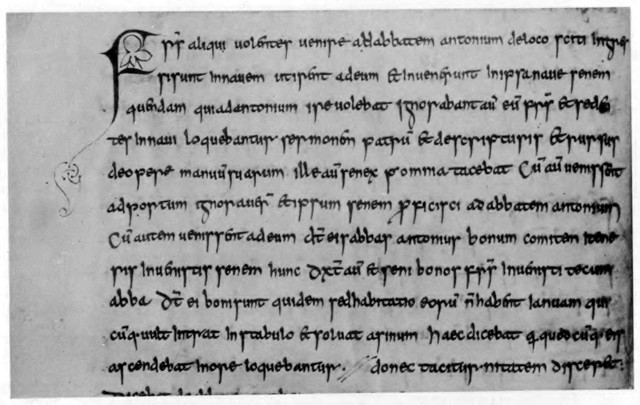 FRR̄ aliqui volentes venire ad abbatem antonium de loco sciti ingres
si sunt in navem ut irent ad eum et invenerunt in ipsa nave senem
quendam qui ad antonium ire volebat ignorabant aū eū frr̄ et seden
tes in navi loquebantur sermonem patrū et de scripturis et rursus
de opere manuū suarum ille aū senex p omnia tacebat Cū aū venissent
ad portum ignoraver̄ et ipsum senem proficisci ad abbatem antonium
Cū autem venissent ad eum dt̄ eis abbas antonius bonum comitem itene
ris invenistis senem hunc dxt̄ aū et seni bonos frr̄ invenisti tecum
abba dt̄ ei boni sunt quidem sed habitatio eorū n̄ habent ianuam qui
cūq vult intrat in stabulo et solvat asinum haec dicebat q quodcūq eis
ascendebat in ore loquebantur. donec taciturnitatem disceret